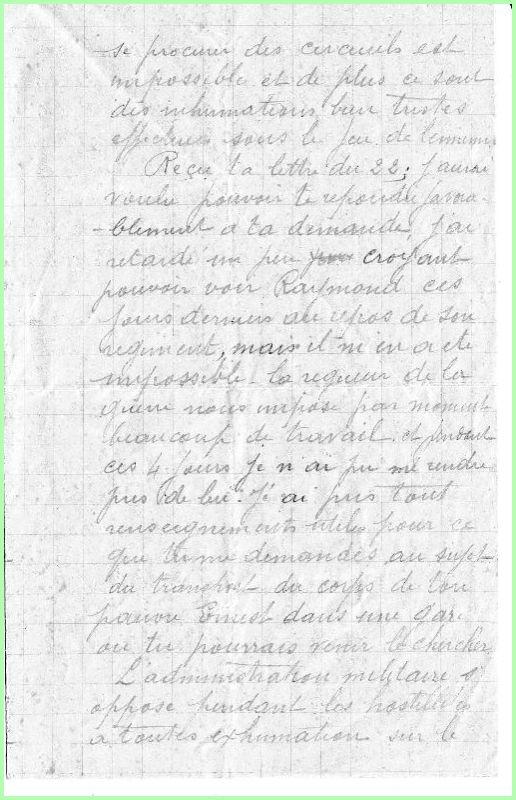 se procurer des cercueils est
impossible et de plus ce sont
des inhumations bien tristes
effectuées sous le feu de l'ennemi
Reçu ta lettre du 22; j'aurai
voulu pouvoir te repondre favora-
-blement a ta demande, j'ai
retardé un peu croyant
pouvoir voir Raymond ces
jours derniers au repos de son
regiment, mais il m'en a ete
impossible. la regueur de la
guerre nous impose par moment
beaucoup de travail et pendant
ces 4 jours je n'ai pu me rendre
pres de lui. J'ai pris tout
renseignements utiles pour ce
que tu me demandes au sujet
du transport du corps de ton
pauvre Ernest dans une gare
ou tu pourrais venir le chercher
L'administration militaire s'
oppose pendant les hostilités
a toutes exhumation sur le